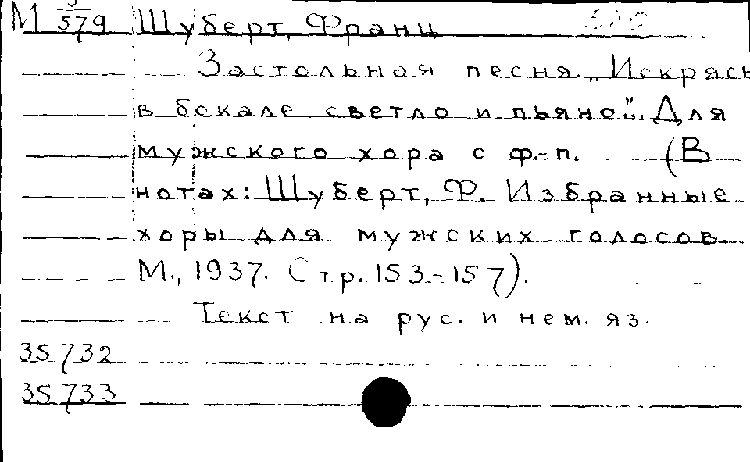 М 3/579 Шуберт, Франц
Застольная песня „Искрясь
в бокале светло и пьяной". Для
мужского хора с ф.-п. (В
нотах: Шуберт, Ф. Избранные
хоры для мужских голосов
М., 1937. Стр. 153-157).
Текст на рус. и нем. яз.
35732
35733